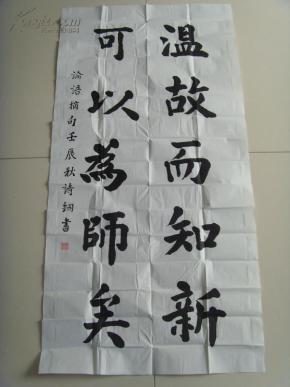 温故而知新
可以為師矣
論語摘句壬辰秋詩鋼書